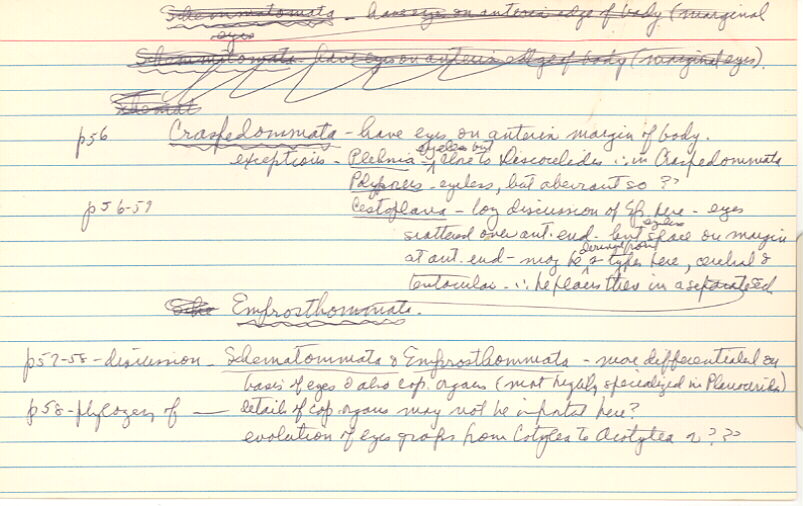 Schemmatomata - have eye on anterior edge of body (marginal
eyes
Schemmatomata - have eyes on anterior edge of body (marginal eyes).
Schemat
p56 Craspedommata - have eyes on anterior margin of body.
eyeless but
exceptions - Plehnia - close to Discocelides ∴ in Craspedommata
Polyporus - eyeless, but aberrant so ??
p56-57 Cestoplana - long discussion of here - eyes
eyeless
scattered over ant. end - but space on margin
derived from
at ant. end - may be 2 types here, cerebral &
tentacular. ∴ he places this in a separate sect.
Emprosthommata.
p57-58 - discussion - Schematommata & Emprosthommata - more differentiated on
basis of eyes & also cop. organs (most highly specialized in Planocerids)
p58 - phylogeny of — details of cop. organs may not be important here?
evolution of eyes groups from Cotylea to Acotylea ???